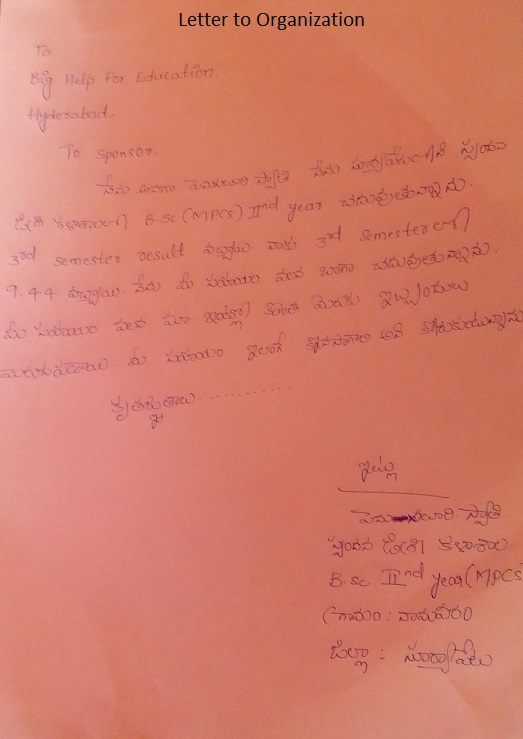 Letter to Organization
To
Big Help For Education.
Hyderabad.
To sponsor.
నేను అనగా పెనుకలవారి స్వాతి నేను సూర్యాపేటలోని స్పందన
డిగ్రీ కళాశాలలో B.Sc (MPCs) IInd year చదువుతున్నాను.
3rd semester result వచ్చాయి. నాకు 3rd semesterలో
9.44 వచ్చాయి. నేను మీ సహాయం వలన బాగా చదువుతున్నాను.
మీ సహాయం వలన మా ఇంట్లో కొంత మేరకు ఇబ్బందులు
మీ సహాయం ఇలాగే కొనసాగాలి అని కోరుకుంటున్నాను
కృతజ్ఞతలు............
ఇట్లు
స్వాతి
స్పందన డిగ్రీ కళాశాల
B.sc IInd year (MPCs
గ్రామం :
జిల్లా : సూర్యాపేట